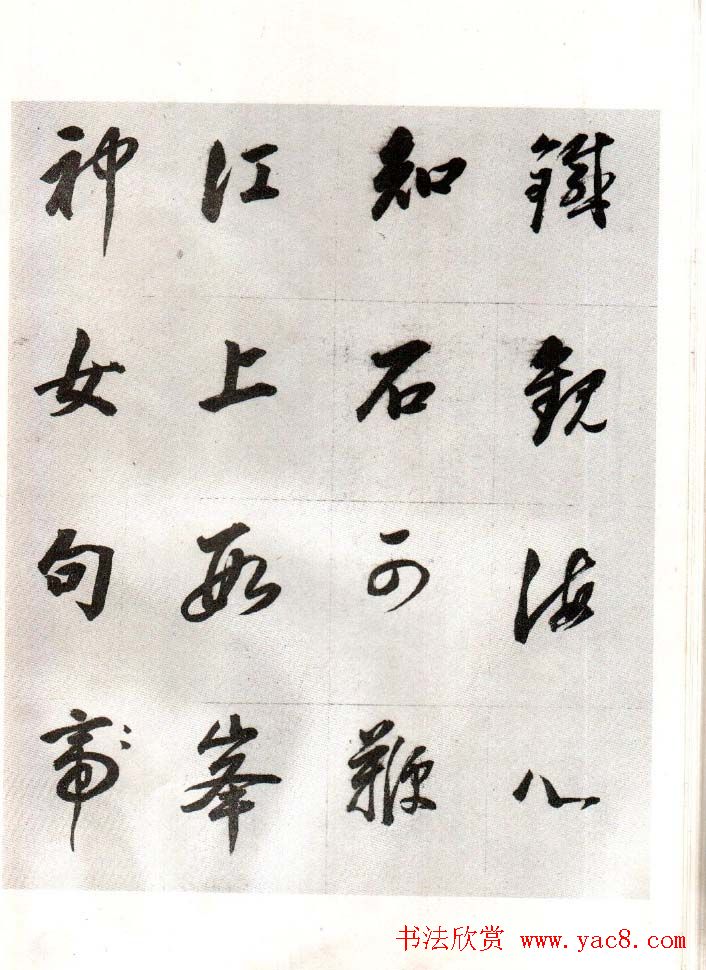 鐵觀海心
知石可鞭
江上數峯
神女句帝
书法欣赏 www.yac8.com